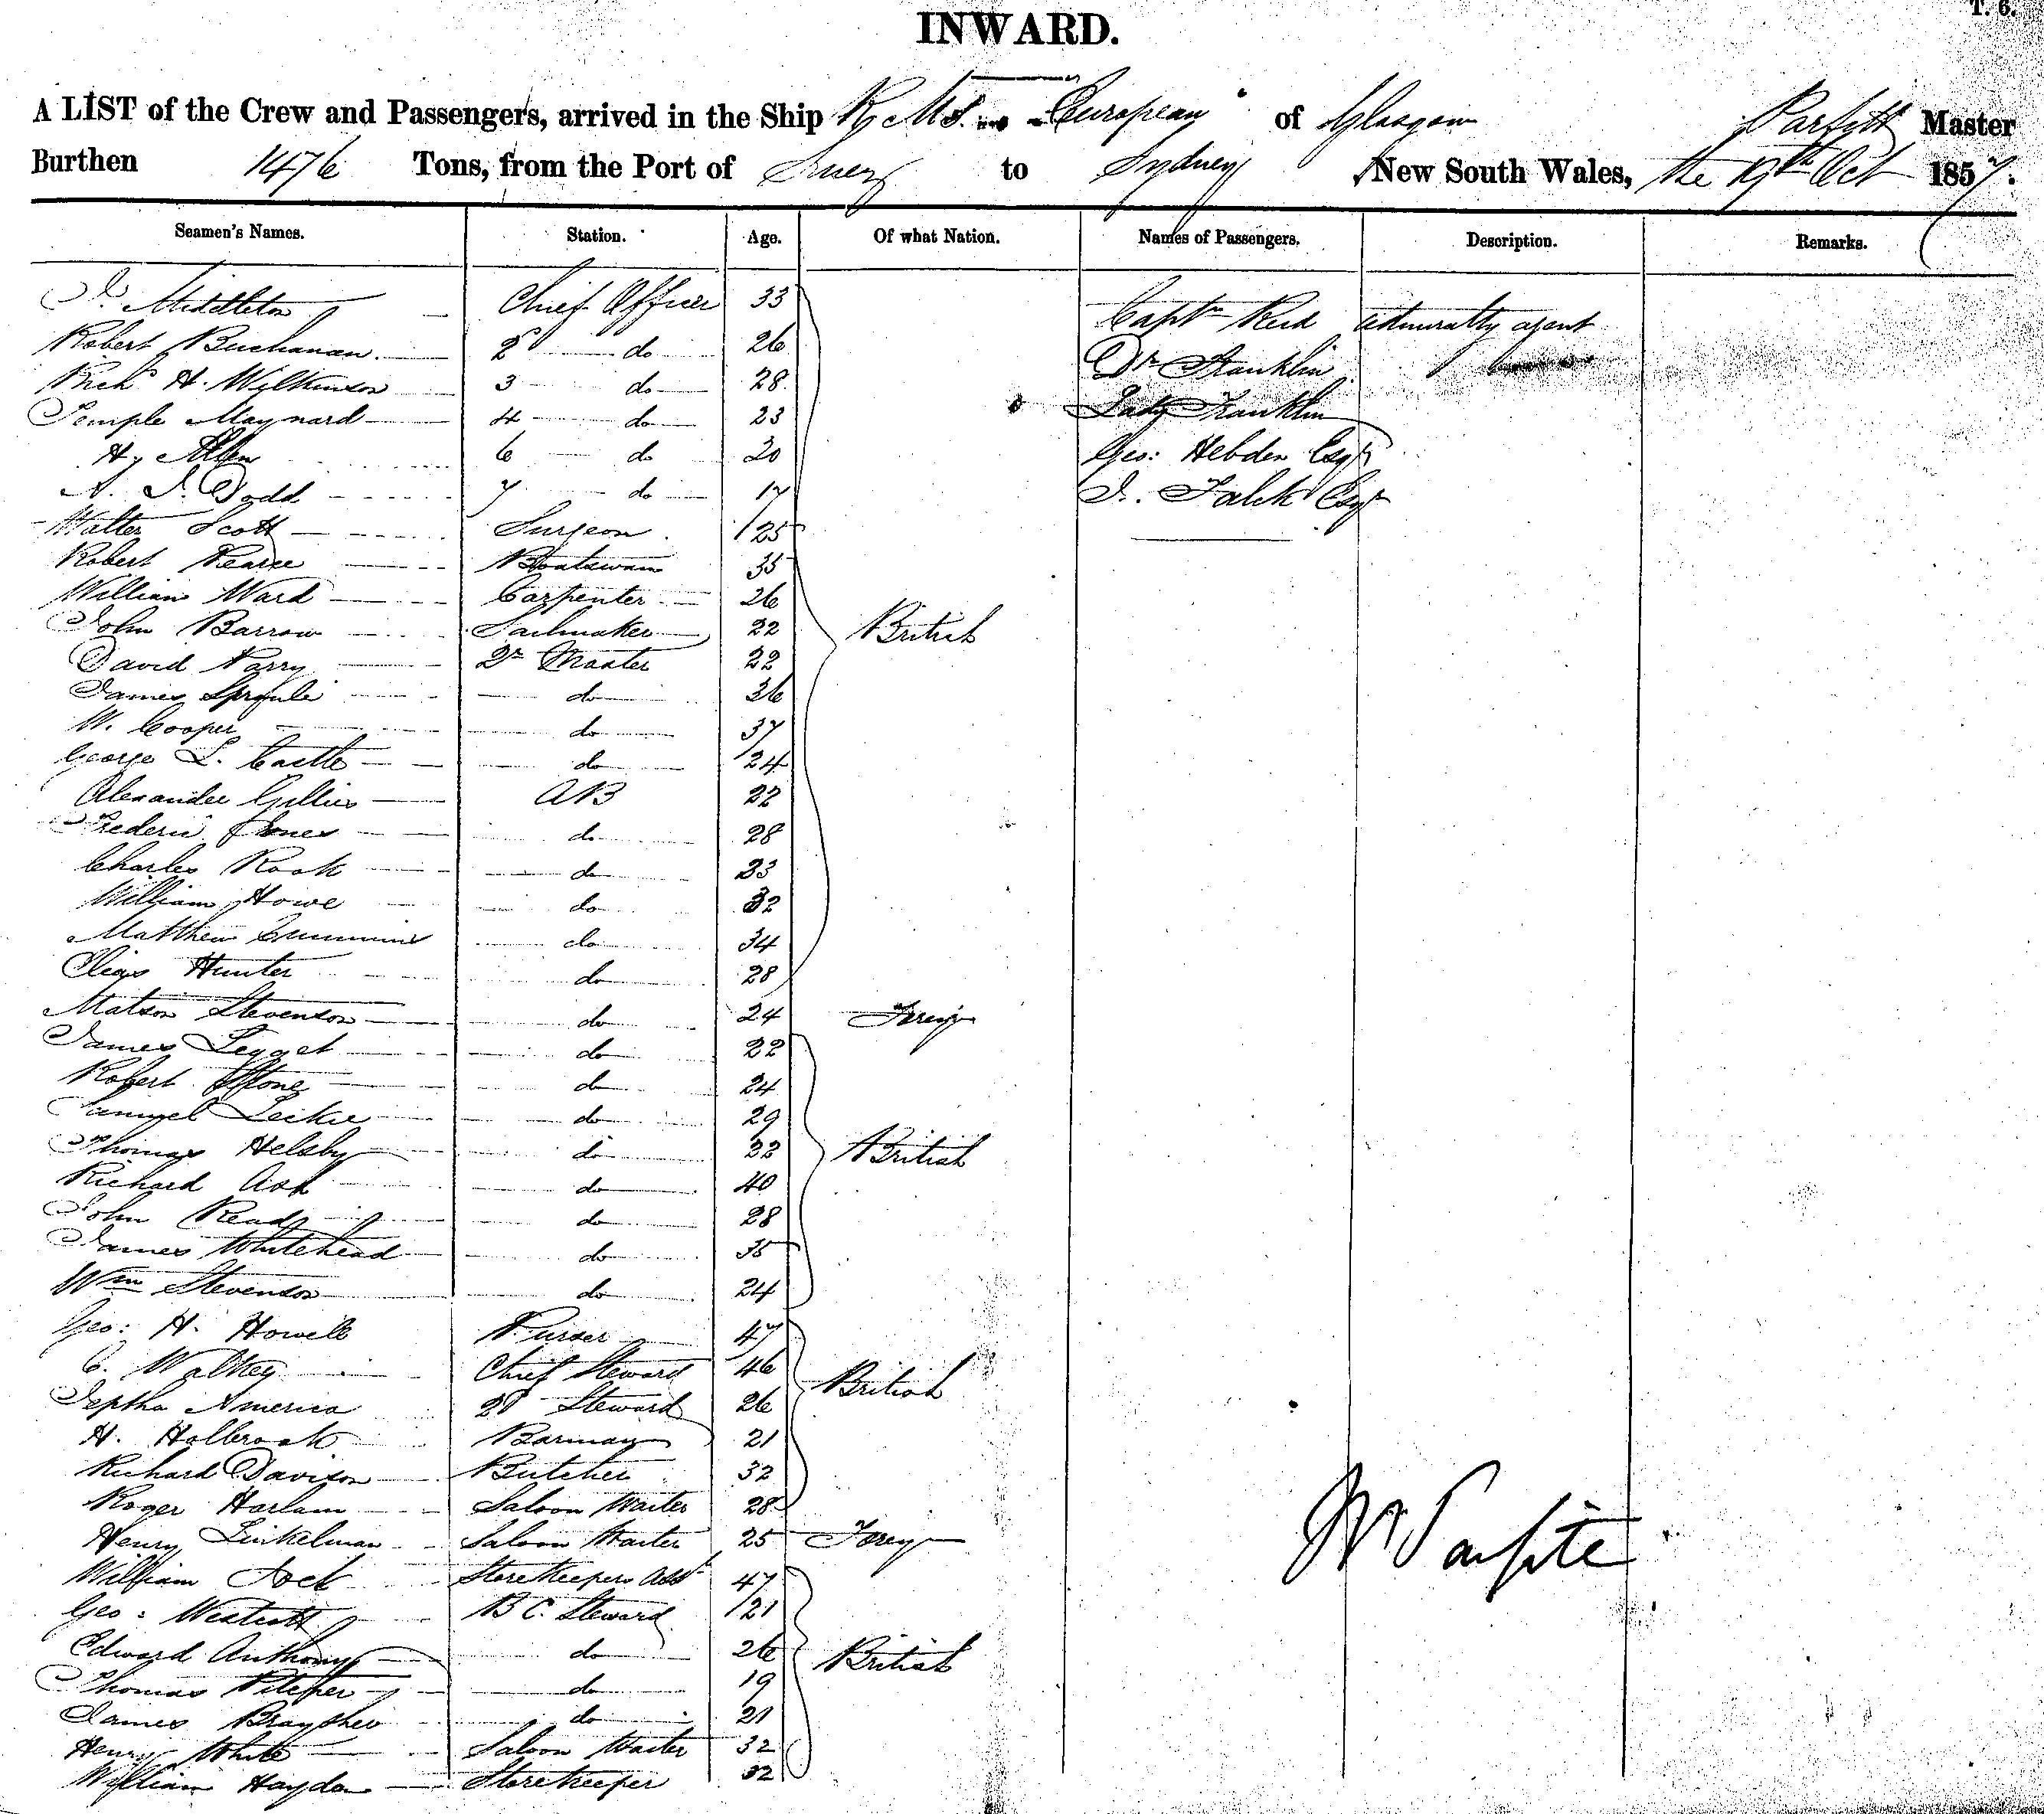 T. 6.
INWARD.
A LIST of the Crew and Passengers, arrived in the Ship R. M. S. "European" of Glasgow Parfitt Master
Burthen 1476 Tons, from the Port of Suez to Sydney New South Wales, the 19th Oct 1857.
Seamen's Names. Station. Age. Of what Nation. Names of Passengers. Description. Remarks.
Middleton Chief Officer 33 Captn Reid Admiralty agent
Robert Buchanan 2d do 26 Dr Franklin
Richd H. Wilkinson 3 do 28 Lady Franklin
Temple Maynard 4 do 23 Geo: Hebden Esqr
Hy Allen 6 do 20 Falck Esqr
A. J. Dodd 7 do 17
Walter Scott Surgeon 25
Robert Pearce Boatswain 35
William Ward Carpenter 26
John Barrow Sailmaker 22 British
David Parry Qr Master 22
James Sproule do 36
W. Cooper do 37
George L. Castle do 24
Alexander Gillies AB 22
Frederic Jones do 28
Charles Rook do 33
William Howe do 32
Matthew Cummins do 34
Elias Hunter do 28
Matson Stevenson do 24 Foreign
James Legget do 22
Robert Stone do 24
Samuel Leckie do 29
Thomas Helsby do 22 British
Richard Ash do 40
John Ready do 28
James Whitehead do 35
Wm Stevenson do 24
Geo: H. Howell Purser 47
C. Walkey Chief Steward 46
Jeptha America 2d Steward 26 British
H. Holbrook Barman 21
Richard Davison Butcher 32
Roger Harlam Saloon Waiter 28
Henry Saloon Waiter 25 Foreign
William Storekeepers Asst 47
Geo: Westcott B C. Steward 21
Edward Anthony do 26 British
Thomas do 19
James Brayshew do 21
Henry White Saloon Waiter 32
William Haydon Storekeeper 32